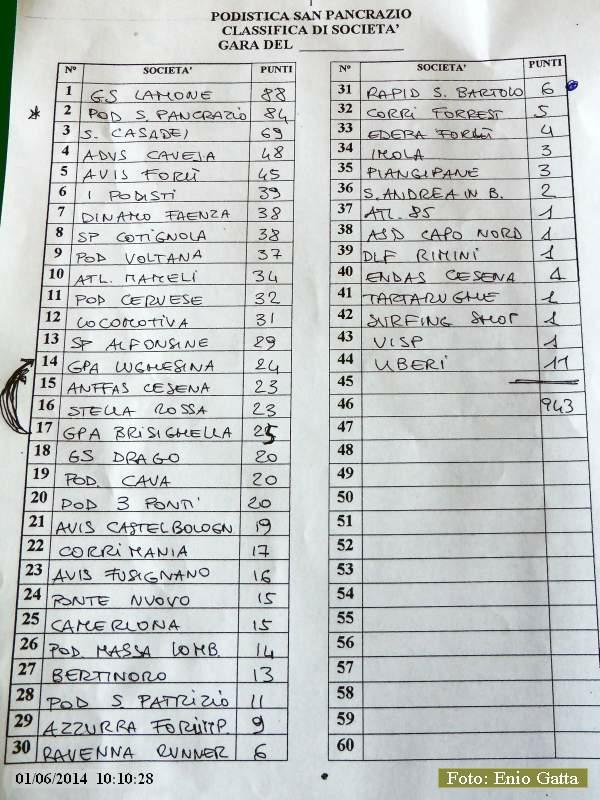 PODISTICA SAN PANCRAZIO
CLASSIFICA DI SOCIETA'
GARA DEL
N° SOCIETA' PUNTI
1 GS LAMONE 88
* 2 POD S. PANCRAZIO 84
3 S. CASADEI 69
4 ADVS CAVEJA 48
5 AVIS FORLÌ 45
6 I PODISTI 39
7 DINAMO FAENZA 38
8 SP COTIGNOLA 38
9 POD VOLTANA 37
10 ATL. MAMELI 34
11 POD CERVESE 32
12 LOCOMOTIVA 31
13 SP ALFONSINE 29
14 GPA LUGHESINA 24
15 ANFFAS CESENA 23
16 STELLA ROSSA 23
17 GPA BRISIGHELLA 25
18 GS DRAGO 20
19 POD. CAVA 20
20 POD 3 PONTI 20
21 AVIS CASTELBOLOGN 19
22 CORRIMANIA 17
23 AVIS FUSIGNANO 16
24 PONTE NUOVO 15
25 CAMERLONA 15
26 POD. MASSA LOMB. 14
27 BERTINORO 13
28 POD S PATRIZIO 11
29 AZZURRA FORLIMP. 9
30 RAVENNA RUNNER 6
N° SOCIETA' PUNTI
31 RAPID S. BARTOLO 6
32 CORRI FORREST 5
33 EDERA FORLÌ 4
34 IMOLA 3
35 PIANGIPANE 3
36 S. ANDREA IN B. 2
37 ATL. 85 1
38 ASD CAPO NORD 1
39 DLF RIMINI 1
40 ENDAS CESENA 1
41 TARTARUGHE 1
42 SURFING SHOP 1
43 UISP 1
44 LIBERI 11
45
46 943
47
48
49
50
51
52
53
54
55
56
57
58
59
60
01/06/2014 10:10:28
Foto: Enio Gatta